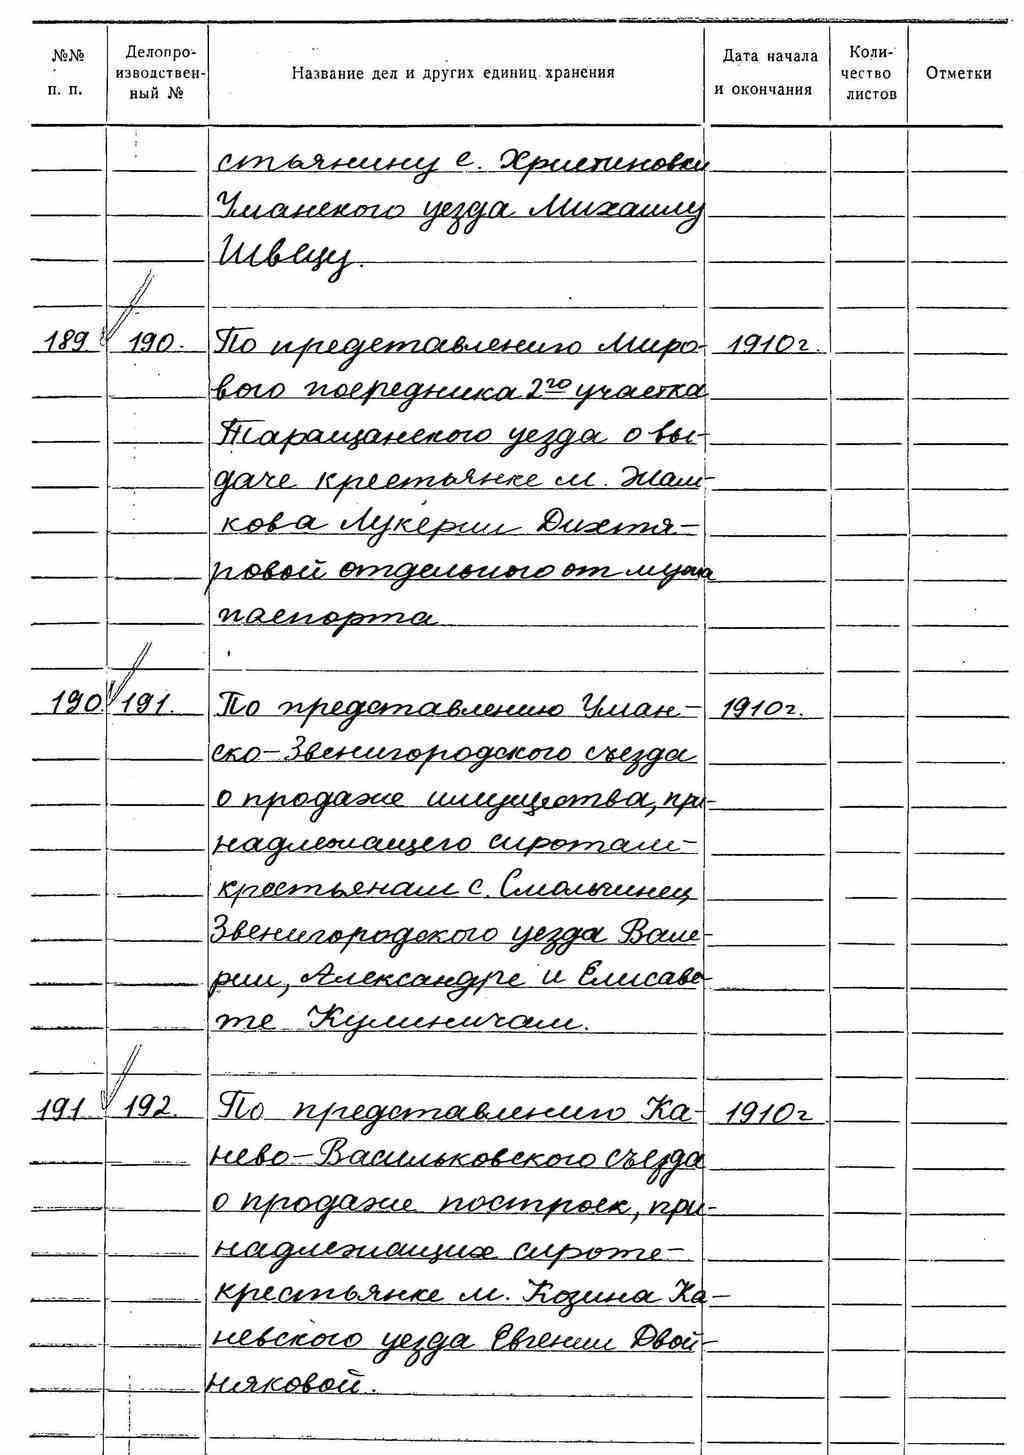 №№ п. п. Делопроизводственный № Название дел и других единиц хранения Дата начала и окончания Количество листов Отметки
стьянину с. Христиновки
Уманского уезда Михаилу
Швецу.
189 190. По представлению Миро- 1910 г.
вого посредника 2го участка
Таращанского уезда о вы-
даче крестьянке м. Жаш-
кова Лукерии Дихтя-
ровой отдельного от мужа
паспорта
190 191. По представлению Уман- 1910 г.
ско-Звенигородского съезда
о продаже имущества, при-
надлежащего сиротам-
крестьянам с. Смольчинец
Звенигородского уезда Вале-
рии, Александре и Елисаве-
те Кулиничам.
191 192. По представлению Ка- 1910 г
нево-Васильковского съезда
о продаже построек, при-
надлежащих сироте-
крестьянке м. Козина Ка-
невского уезда Евгении Двой-
няковой.